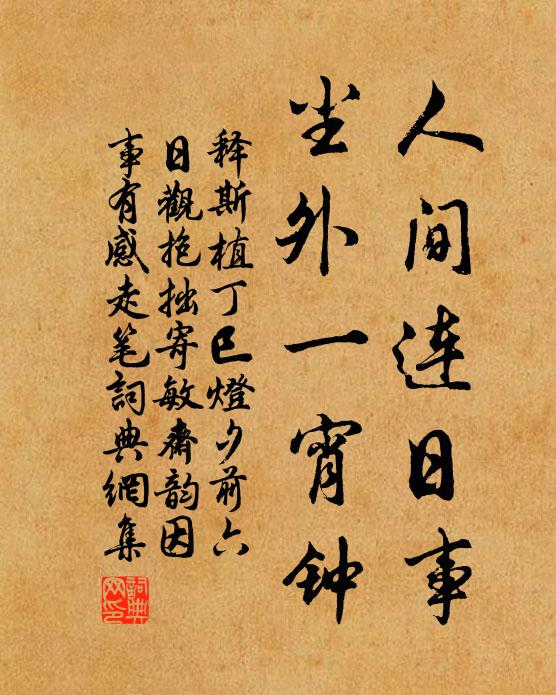 人间连日事
尘外一宵钟
释斯植丁巳燈夕前六
日觀抱拙寄敏齋韵因
事有感走笔詞典網集
詞典网印